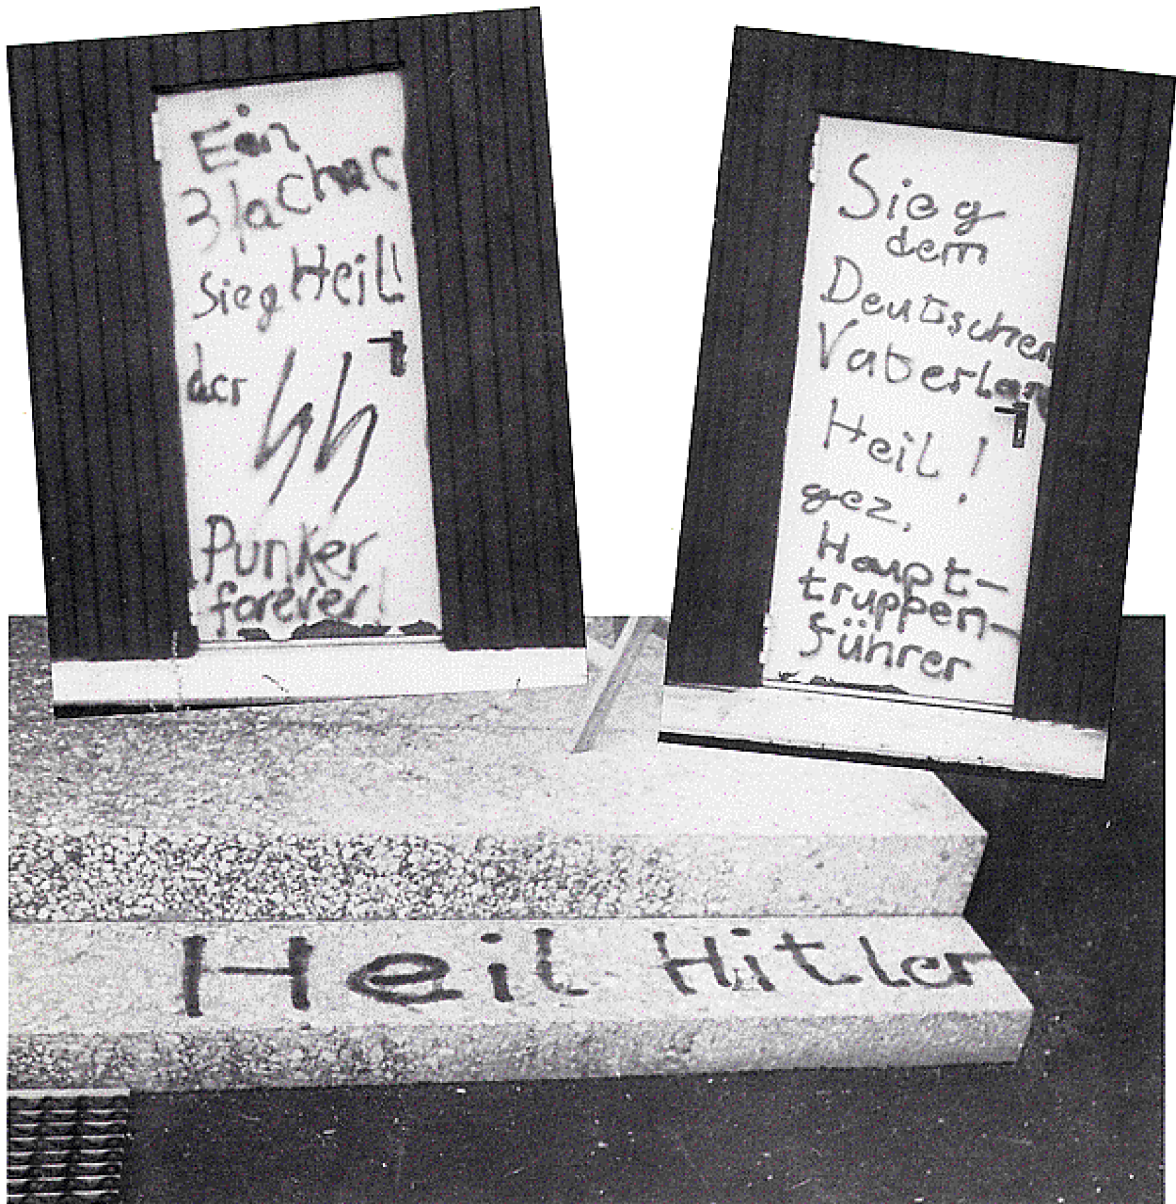 Ein
3fachac
Sieg Heil!
der SS
Punker
forever!
Sieg
dem
Deutschen
Vaterland
Heil!
gez.
Haupt-
truppen-
führer
Heil Hitler